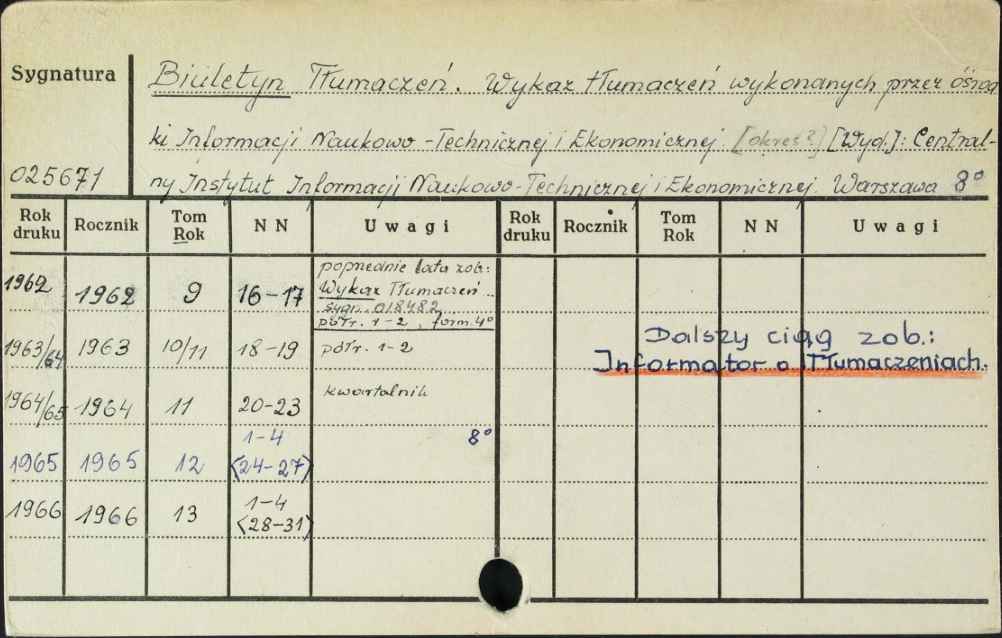 Sygnatura
Biuletyn Tłumaczeń. Wykaz tłumaczeń wykonanych przez ośrod
ki Informacji Naukowo-Technicznej i Ekonomicznej. [okres?] [Wyd.]: Central-
025671
ny Instytut Informacji Naukowo-Technicznej i Ekonomicznej. Warszawa 8°
Rok druku Rocznik Tom Rok NN Uwagi Rok druku Rocznik Tom Rok NN Uwagi
1962 1962 9 16-17 poprzednie lata zob.:
Wykaz Tłumaczeń..
sygn. 018482
półr. 1-2, form. 4°
1963/64 1963 10/11 18-19 półr. 1-2
Dalszy ciąg zob.:
Informator o Tłumaczeniach.
1964/65 1964 11 20-23 kwartalnik
1965 1965 12 1-4 <24-27> 8°
1966 1966 13 1-4 <28-31>